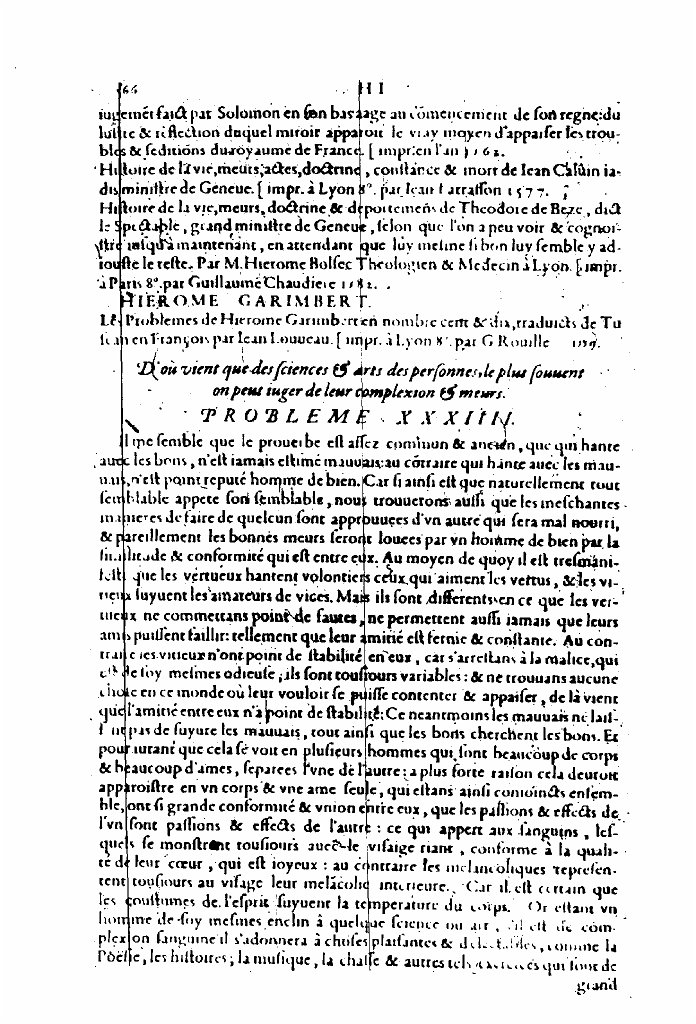 66 HI
iugemẽt faict par Solomon en son bas aage au cõmencement de son regne: du
lustre & reflection duquel miroir apparoit le vray moyen d'appaiser les trou-
bles & seditions du royaume de France. [impr. en l'an 1562.
Histoire de la vie, meurs, actes, doctrine, constance & mort de Iean Caluin ia-
dis ministre de Geneue. [impr. à Lyon 8°. par Iean Patrasson 1577.
Histoire de la vie, meurs, doctrine & deportemens de Theodore de Beze, dict
le Spectable, grand ministre de Geneue, selon que l'on a peu voir & cognoi-
stre iusqu'à maintenant, en attendant que luy mesme si bon luy semble y ad-
iouste le reste. Par M. Hierome Bolsec Theologien & Medecin à Lyon. [impr.
à Paris 8°. par Guillaume Chaudiere 1582.
HIEROME GARIMBERT.
Les Problemes de Hierome Garimbert en nombre cent & dix, traduicts de Tu
scan en François par Iean Louueau. [impr. à Lyon 8°. par G Rouille
D'où vient que des sciences & arts des personnes, le plus souuent
on peut iuger de leur complexion & meurs.
PROBLEME XXXIIII.
Il me semble que le prouerbe est assez commun & ancien, que qui hante
auec les bons, n'est iamais estimé mauuais: au cõtraire qui hante auec les mau-
uais, n'est point reputé homme de bien. Car si ainsi est que naturellement tout
semblable appete son semblable, nous trouuerons aussi que les meschantes
manieres de faire de quelcun sont approuuees d'vn autre qui sera mal nourri,
& pareillement les bonnes meurs seront louees par vn homme de bien par la
similitude & conformité qui est entre eux. Au moyen de quoy il est tresmani-
feste que les vertueux hantent volontiers ceux qui aiment les vertus, & les vi-
tieux suyuent les amateurs de vices. Mais ils sont differents en ce que les ver-
tueux ne commettans point de fautes, ne permettent aussi iamais que leurs
amis puissent faillir: tellement que leur amitié est ferme & constante. Au con-
traire les vitieux n'ont point de stabilité en eux, car s'arrestans à la malice, qui
est de soy mesmes odieuse, ils sont tousiours variables: & ne trouuans aucune
chose en ce monde où leur vouloir se puisse contenter & appaiser, de là vient
que l'amitié entre eux n'a point de stabilité: Ce neantmoins les mauuais ne lais-
sent pas de suyure les mauuais, tout ainsi que les bons cherchent les bons. Et
pour autant que cela se voit en plusieurs hommes qui sont beaucoup de corps
& beaucoup d'ames, separees l'vne de l'autre: à plus forte raison cela deuroit
apparoistre en vn corps & vne ame seule, qui estans ainsi conioincts ensem-
ble, ont si grande conformité & vnion entre eux, que les passions & effects de
l'vn sont passions & effects de l'autre: ce qui appert aux sanguins, les-
quels se monstrent tousiours auec le visaige riant, conforme à la quali-
té de leur cœur, qui est ioyeux: au contraire les melancoliques represen-
tent tousiours au visage leur melãcolie interieure. Car il est certain que
les coustumes de l'esprit suyuent la temperature du corps. Or estant vn
homme de soy mesmes enclin à quelque science ou art, s'il est de com-
plexion sanguine il s'adonnera à choses plaisantes & delectables, comme la
Poësie, les histoires, la musique, la chasse & autres tels exercices qui sont de
grand